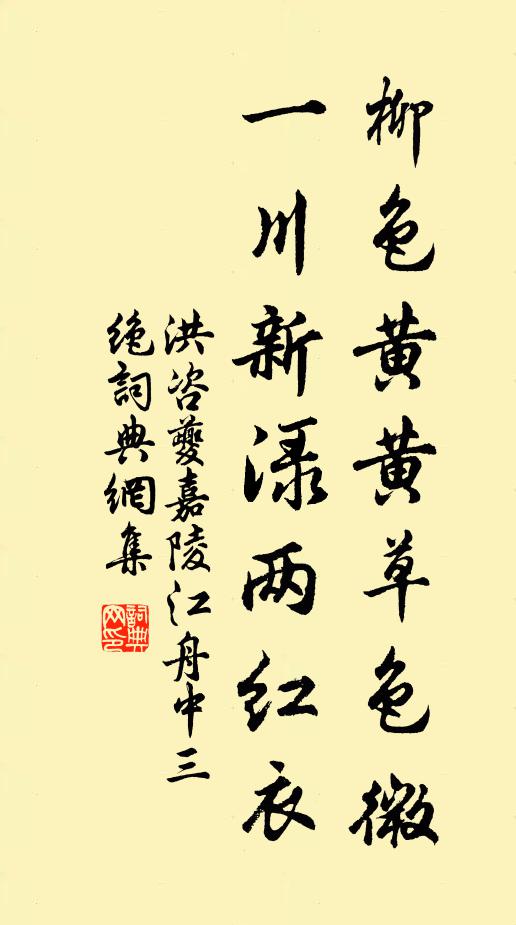 柳色黄黄草色微
一川新渌两红衣
洪咨夔嘉陵江舟中三
绝詞典網集
詞典网印